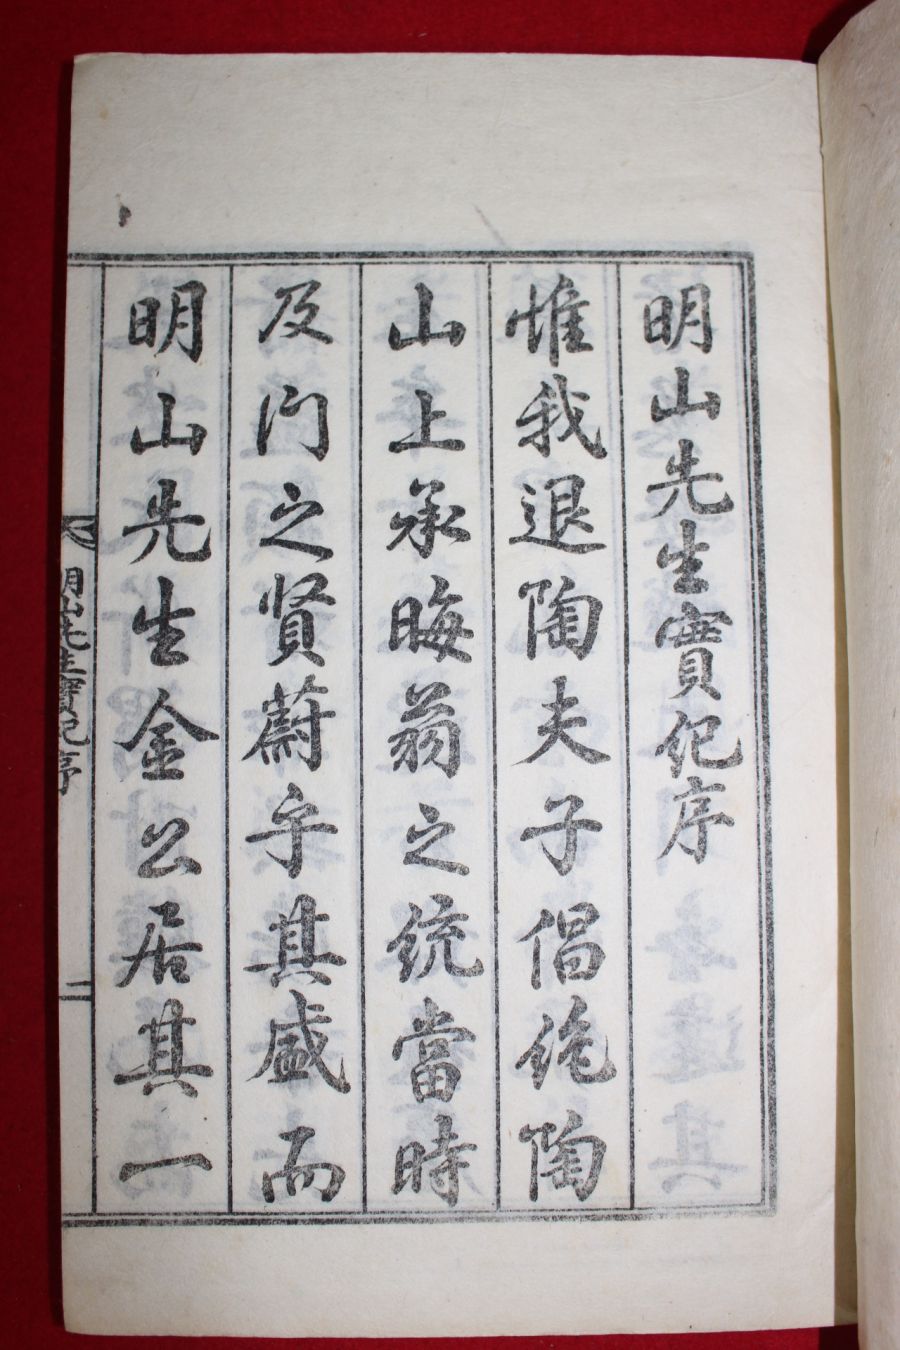 明山先生實紀序
惟我退陶夫子倡絶陶
山上承晦翁之統當時
及門之賢蔚乎其盛而
明山先生金公居其一
明山先生實紀序
二